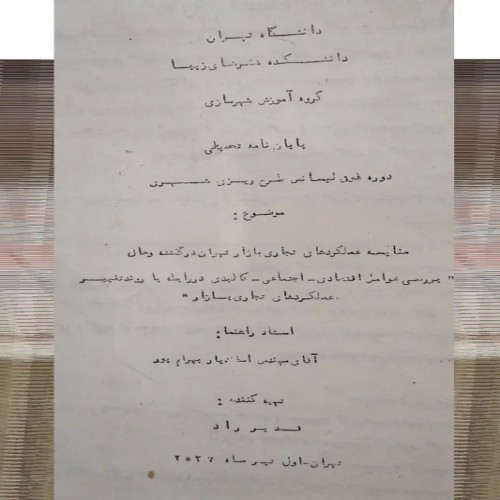 دانشگاه تهران
دانشکده هنرهای زیبا
گروه آموزش شهرسازی
پایان نامه تحصیلی
دوره فوق لیسانس طرح ریزی شهری
موضوع :
مقایسه عملکردهای تجاری بازار تهران در گذشته وحال
" بررسی عوامل اقتصادی - اجتماعی - کالبدی در رابطه با روند تغییر
عملکردهای تجاری بازار "
استاد راهنما :
آقای مهندس اسفندیار بهرام پور
تهیه کننده :
قدیر راد
تهران - اول تیر ماه ۲۵۳۷